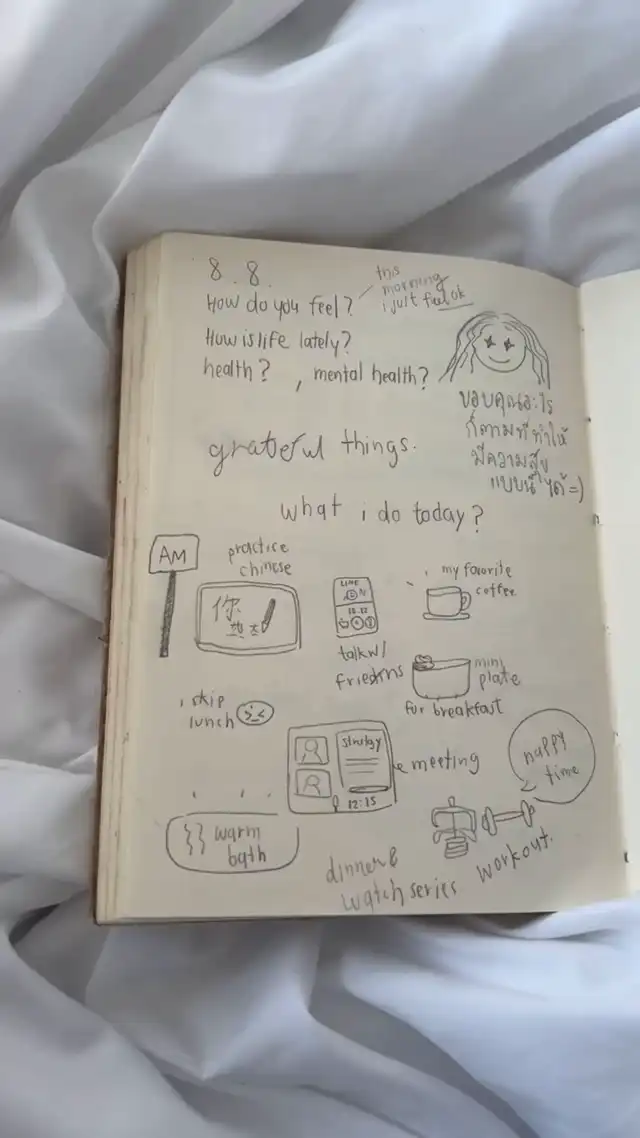 8.8.
How do you feel?
this
morning
i just feel ok
How is life lately?
health? , mental health?
ขอบคุณอะไร
ก็ตามที่ทำให้
มีความสุข
แบบนี้ได้ =)
grateful things.
what i do today?
AM
practice
chinese
你
LINE
talk w/
my favorite
coffee
mini
plate
for breakfast
i skip
lunch
strategy
12:15
meeting
happy
time
warm
bath
dinner &
watch series
workout.